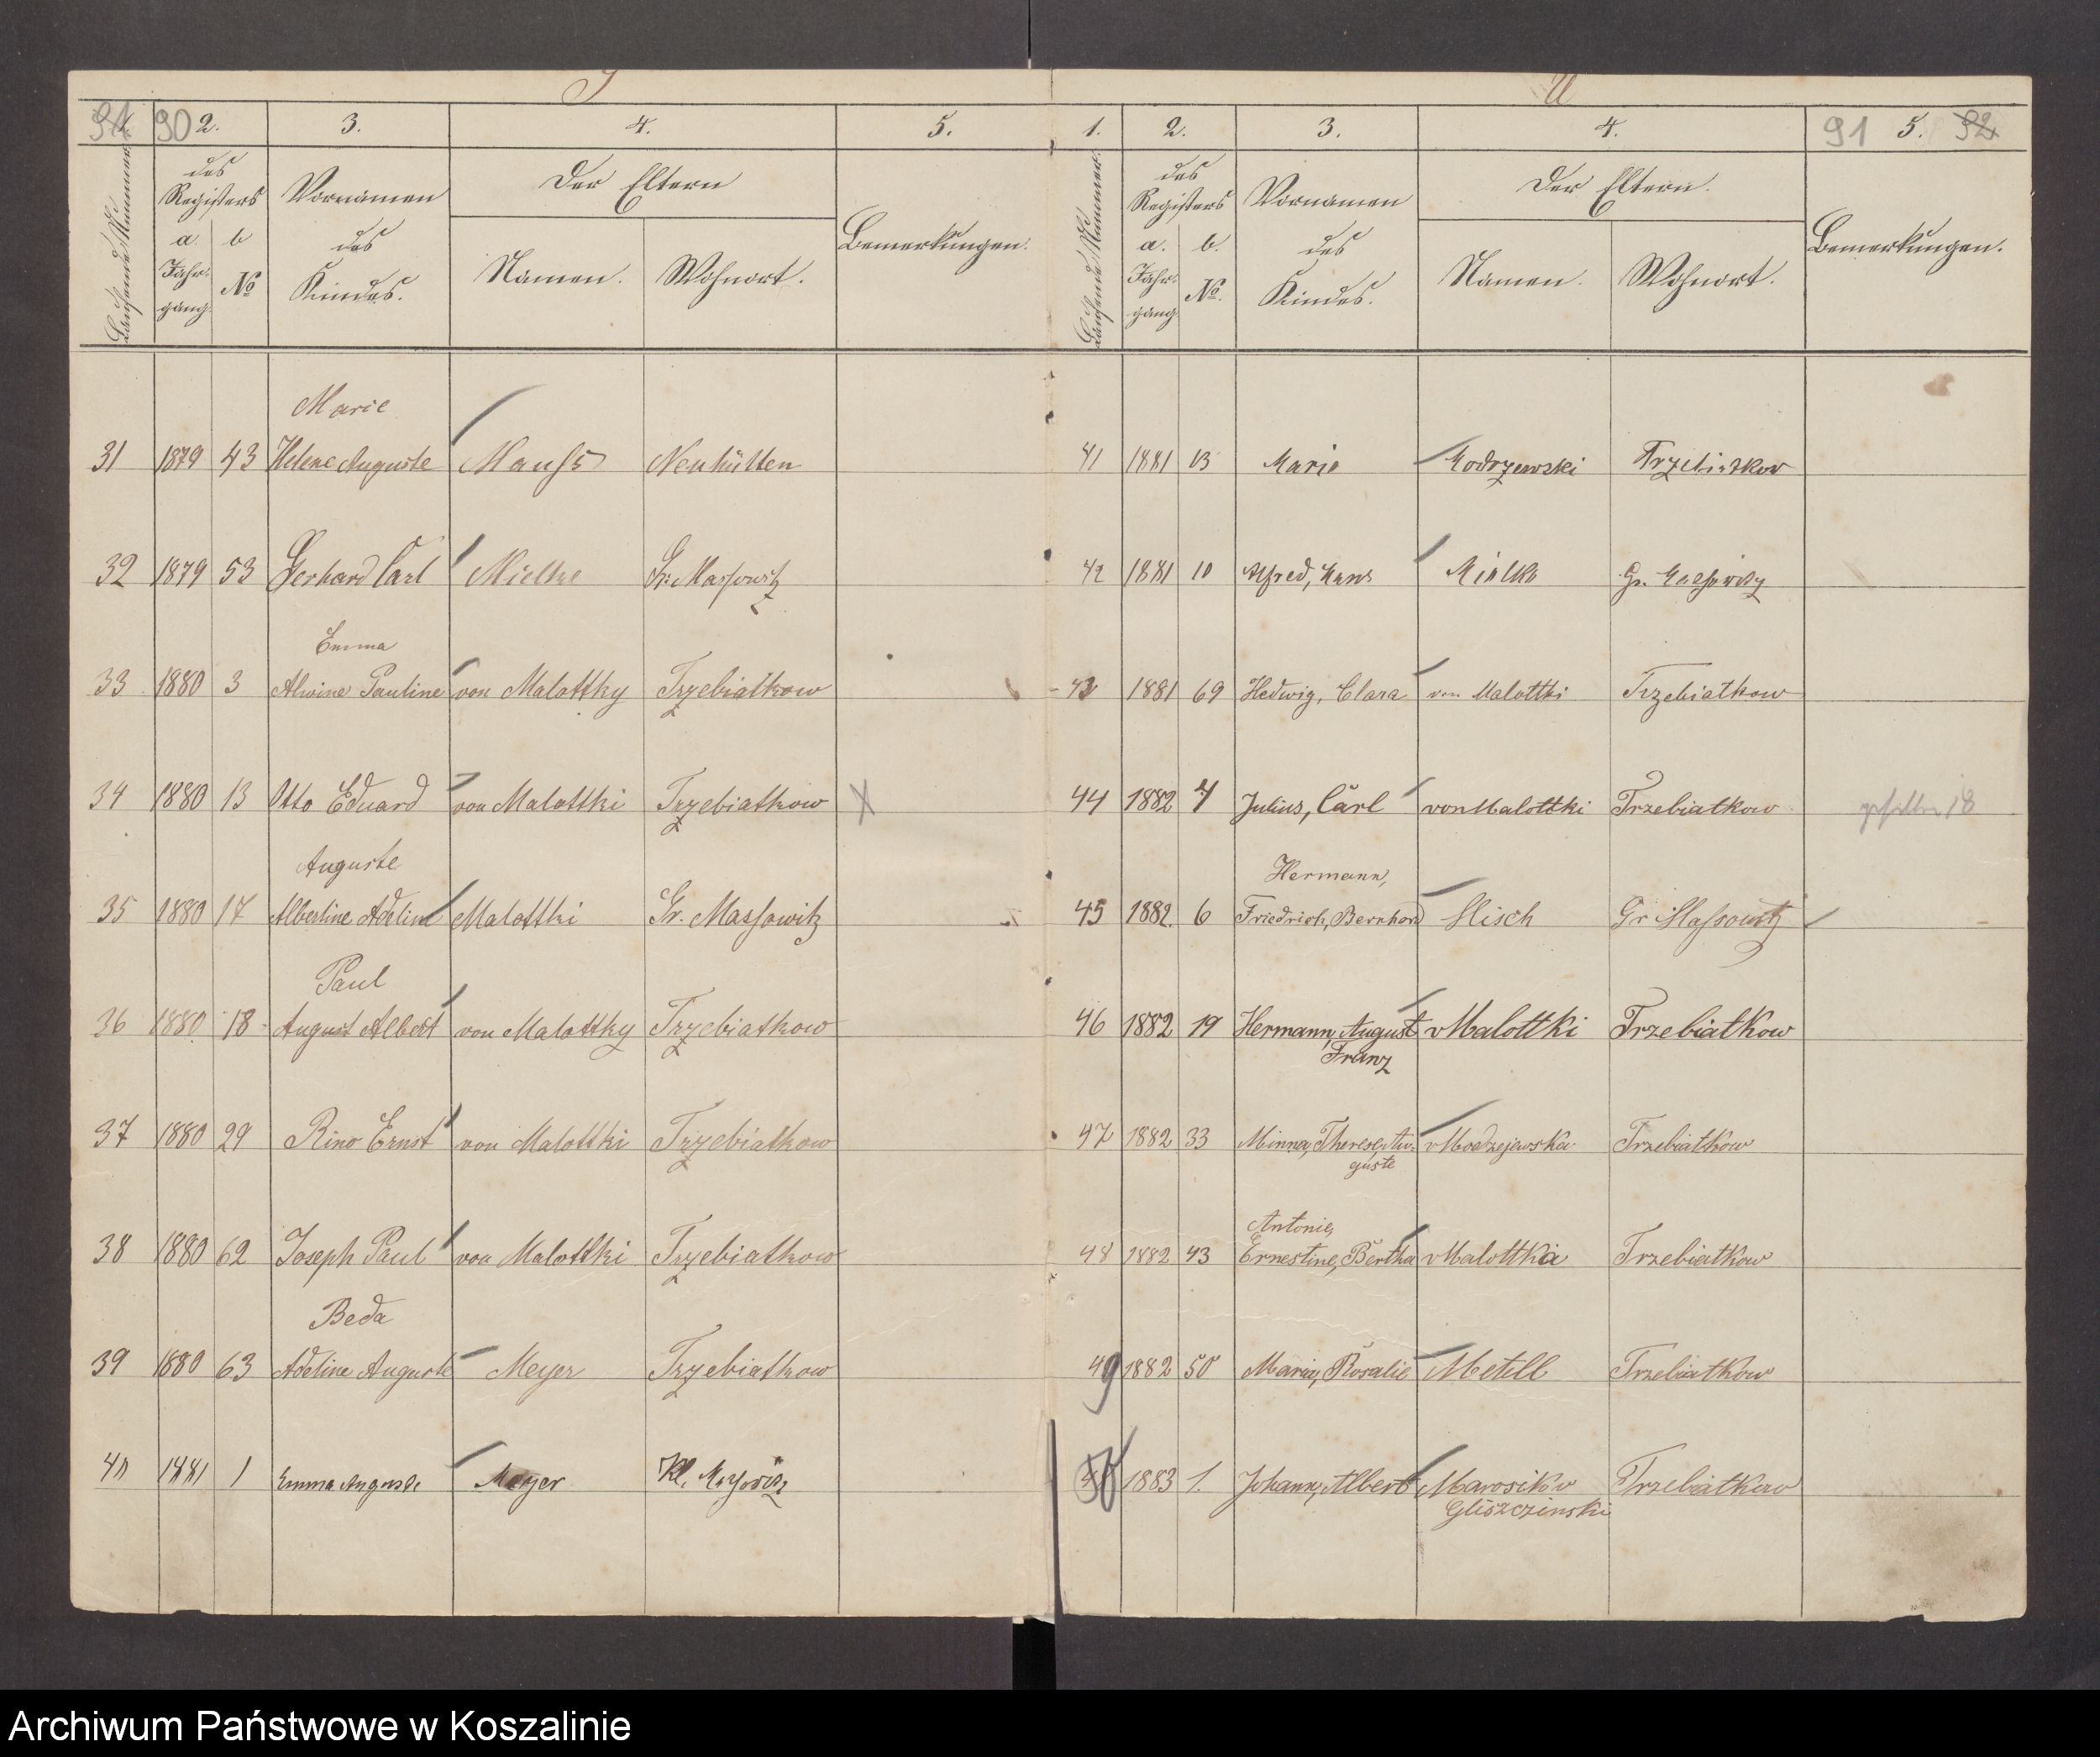 91 90 2. 3. 4. 5.
Laufende Nummer.
des
Registers
a. b
Jahr-
gang
No
Vornamen
des
Kindes.
Der Eltern
Namen. Wohnort.
Bemerkungen.
Marie
31 1879 43 Helene Auguste Neuhütten
32 1879 53 Gerhard Carl Mielke Gr. Massowitz
Emma
33 1880 3 Alwine Pauline von Malottky Trzebiatkow
34 1880 13 Otto Eduard von Malottki Trzebiatkow X
Auguste
35 1880 17 Albertine Adeline Malottki Gr. Massowitz
Paul
36 1880 18 August Albert von Malottky Trzebiatkow
37 1880 29 Rino Ernst von Malottki Trzebiatkow
38 1880 62 Joseph Paul von Malottki Trzebiatkow
Beda
39 1880 63 Adeline Auguste Meyer Trzebiatkow
40 1881 1 Emma Auguste Meyer Kl. Massowitz
U
1. 2. 3. 4. 91 5. 92
Laufende Nummer.
des
Registers
a. b.
Jahr-
gang
No.
Vornamen
des
Kindes.
Der Eltern.
Namen. Wohnort.
Bemerkungen.
41 1881 13 Marie Modrzewski Trzebiatkow
42 1881 10 Alfred, Hans Mielke Gr. Massowitz
43 1881 69 Hedwig, Clara von Malottki Trzebiatkow
44 1882 4 Julius, Carl von Malottki Trzebiatkow
Hermann,
45 1882. 6 Friedrich, Bernhard Misch Gr Massowitz
46 1882 19 Hermann, August vMalottki Trzebiatkow
Franz
47 1882 33 Minna, Therese, Au- vModzejewska Trzebiatkow
guste
Antonie,
48 1882 43 Ernestine, Bertha vMalottka Trzebiatkow
49 1882 50 Maria, Rosalie Metell Trzebiatkow
50 1883 1. Johann, Albert Trzebiatkow
Gliszczinski
Archiwum Państwowe w Koszalinie